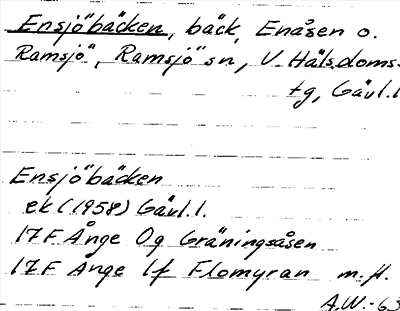 Ensjöbäcken, bäck, Enåsen o.
Ramsjö, Ramsjö sn, V Häls.doms.
tg, Gävl.l.
Ensjöbäcken
ek (1958) Gävl.l.
17F Ånge 0g Gräningsåsen
17F Ånge 1f Flomyran m.fl.
A.W.-63